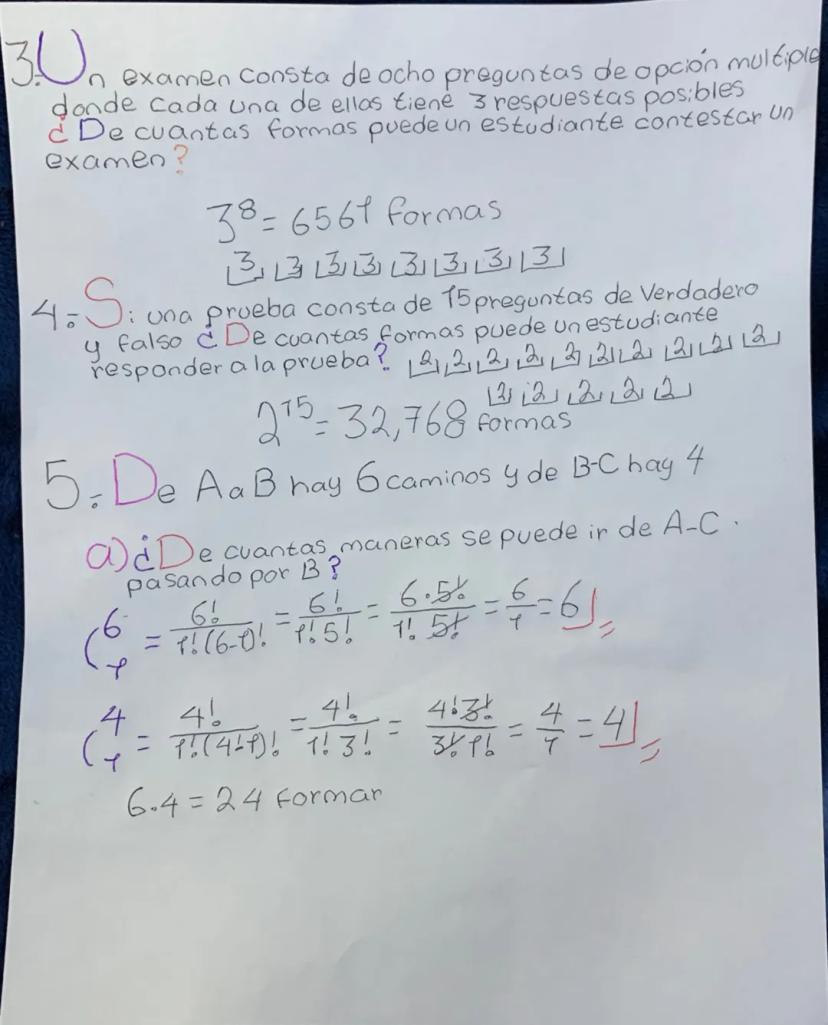 3. Un examen consta de ocho preguntas de opción multiple
donde cada una de ellas tiene 3 respuestas posibles
¿De cuantas formas puede un estudiante contestar un
examen?
3⁸ = 6561 formas
3 3 3 3 3 3 3 3
4.- Si una prueba consta de 15 preguntas de Verdadero
y falso ¿De cuantas formas puede un estudiante
responder a la prueba? 2 2 2 2 2 2 2 2 2 2
2 2 2 2 2
2¹⁵ = 32,768 formas
5.- De A a B hay 6 caminos y de B-C hay 4
a) ¿De cuantas maneras se puede ir de A-C.
pasando por B?
C⁶₁ = 6!/1!(6-1)! = 6!/1!5! = 6·5!/1!5! = 6/1 = 6
C⁴₁ = 4!/1!(4!-1)! = 4!/1!3! = 4!3!/3!1! = 4/1 = 4
6.4 = 24 formar